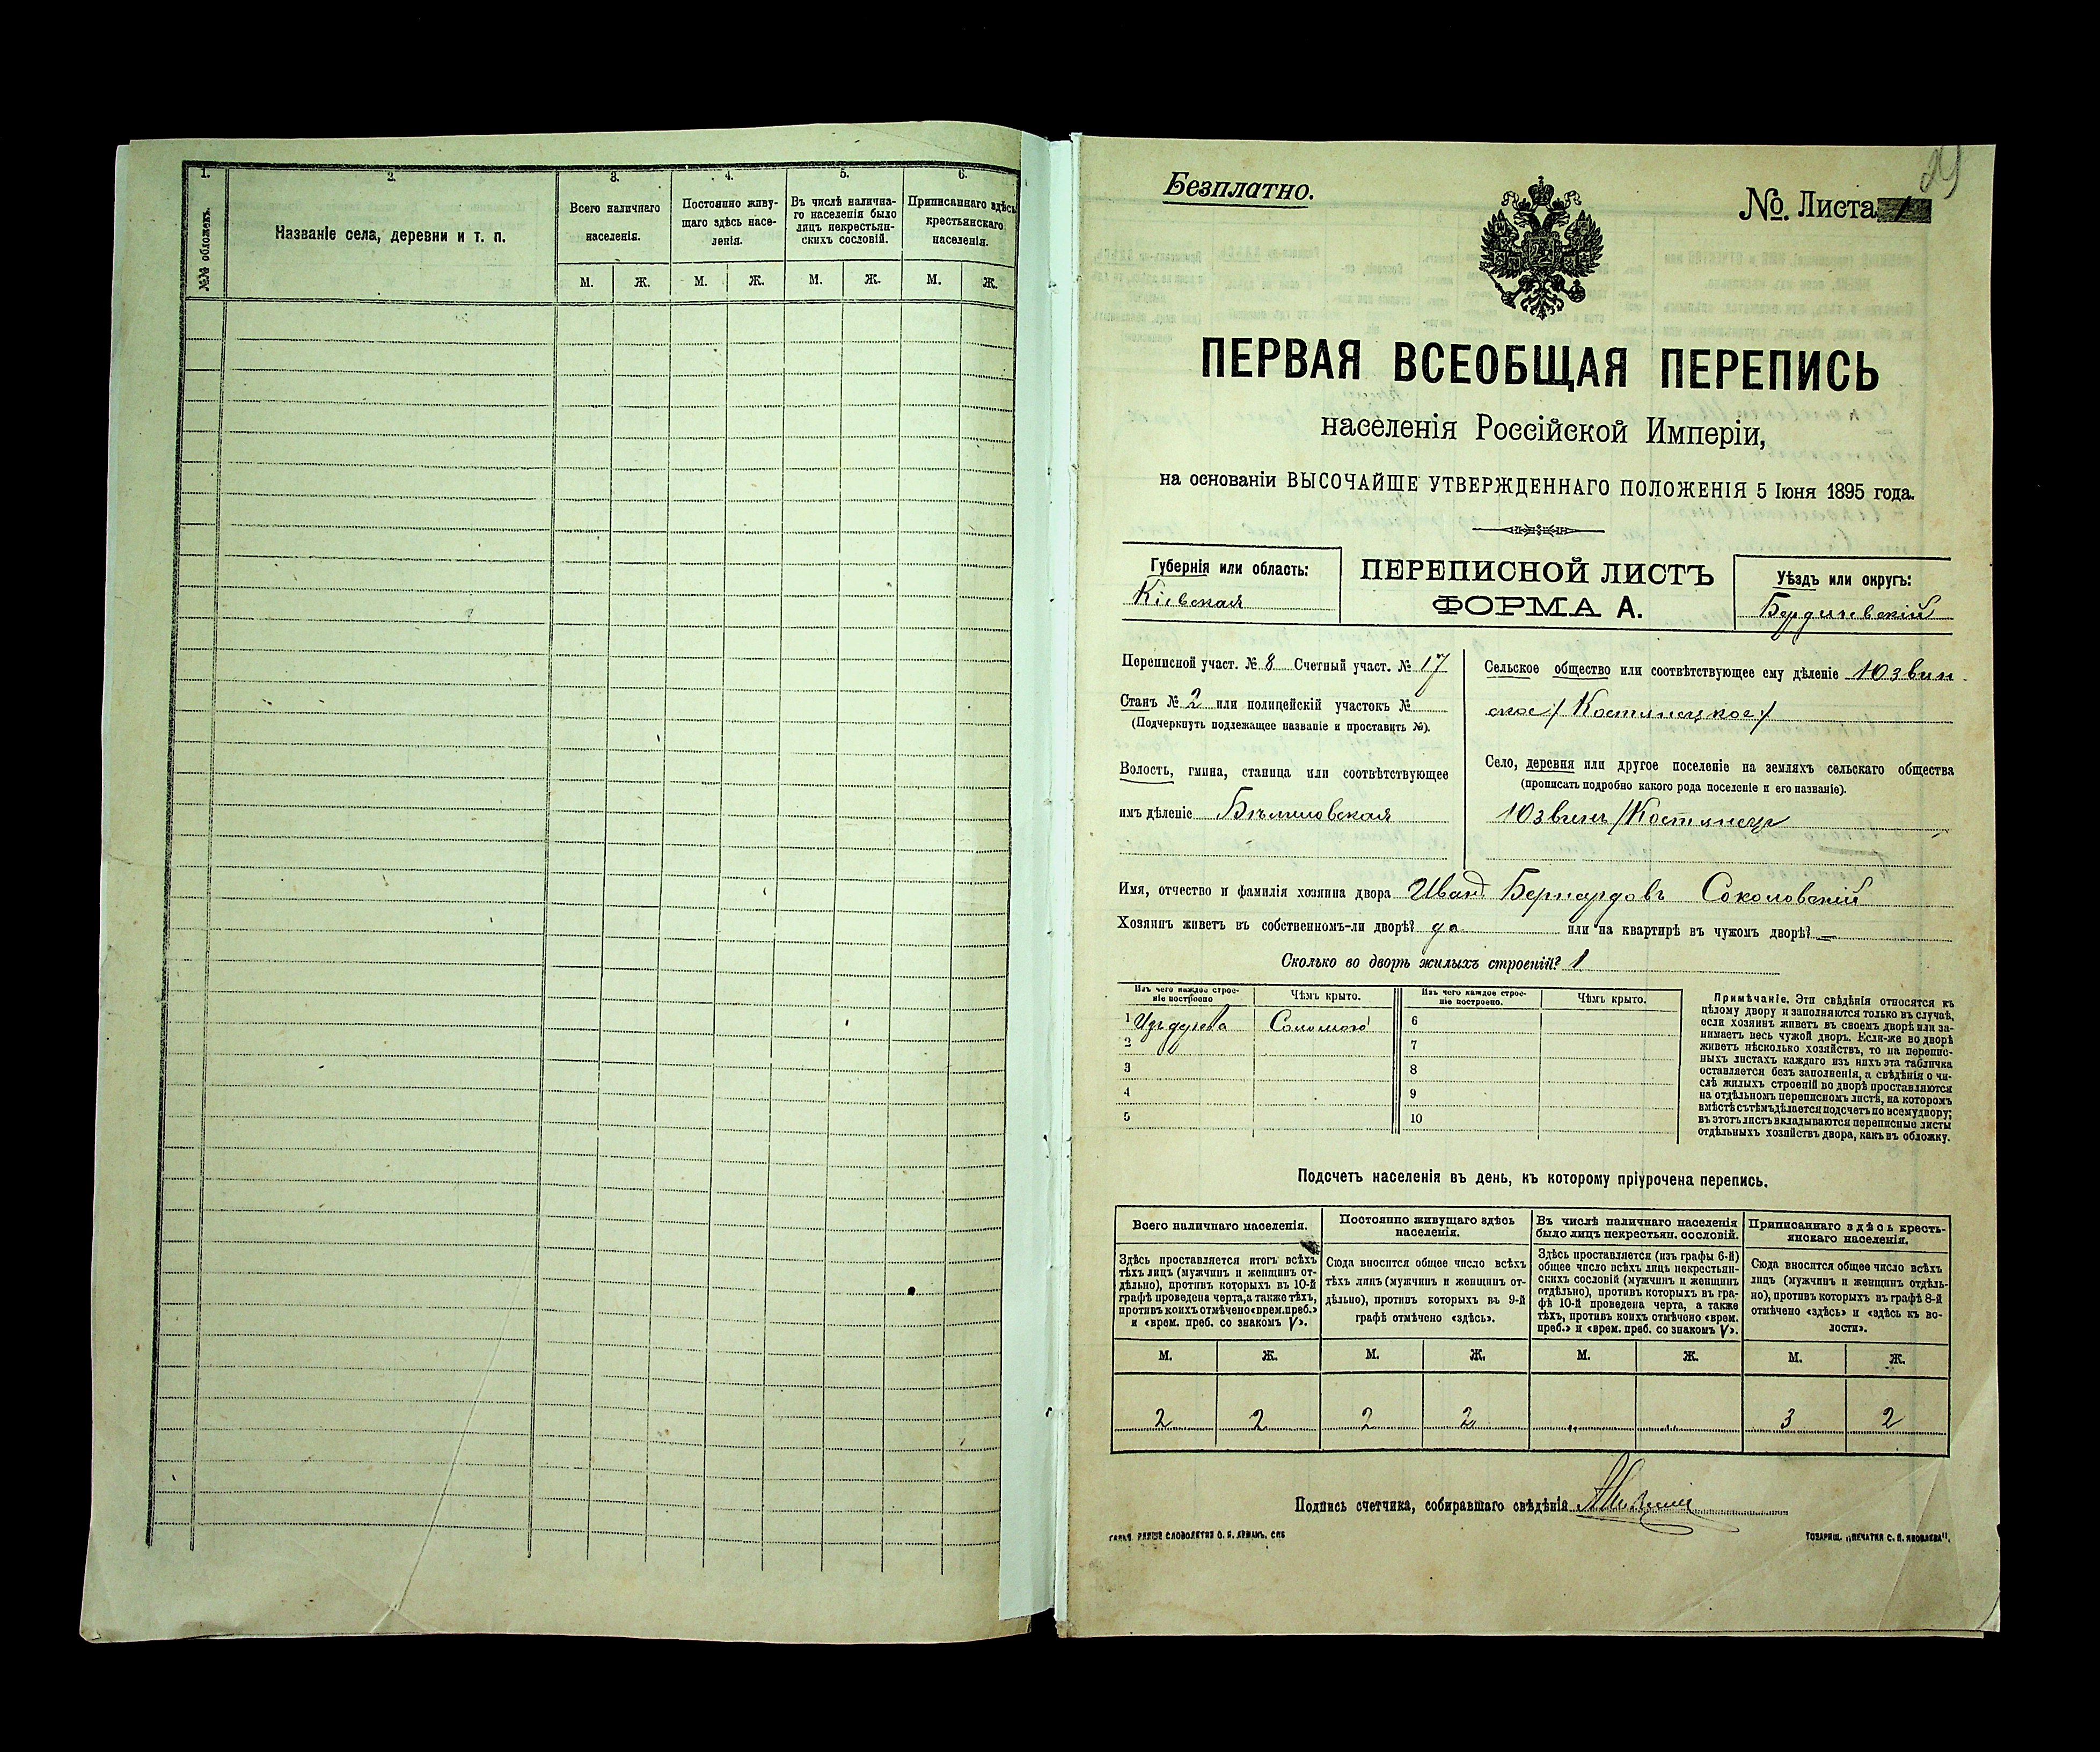 1.
2.
3.
4.
5.
6.
№№ обложекъ.
Названіе села, деревни и т. п.
Всего наличнаго
населенія.
Постоянно живу-
щаго здѣсь насе-
ленія.
Въ числѣ налична-
го населенія было
лицъ некрестьян-
скихъ сословій.
Приписаннаго здѣсь
крестьянскаго
населенія.
М. Ж. М. Ж. М. Ж. М. Ж.
Безплатно.
№ Листа 1
ПЕРВАЯ ВСЕОБЩАЯ ПЕРЕПИСЬ
населенія Россійской Имперіи,
на основаніи ВЫСОЧАЙШЕ УТВЕРЖДЕННАГО ПОЛОЖЕНІЯ 5 Іюня 1895 года.
Губернія или область:
Кіевская
ПЕРЕПИСНОЙ ЛИСТЪ
ФОРМА А.
Уѣздъ или округъ:
Бердичевскій
Переписной участ. № 8 Счетный участ. № 17
Станъ № 2 или полицейскій участокъ №
(Подчеркнуть подлежащее названіе и проставить №).
Волость, гмина, станица или соотвѣтствующее
имъ дѣленіе Бѣлиловская
Сельское общество или соотвѣтствующее ему дѣленіе Юзвин-
ское /Костянецкое/
Село, деревня или другое поселеніе на земляхъ сельскаго общества
(прописать подробно какого рода поселеніе и его названіе).
Юзвинъ /Костянецъ
Имя, отчество и фамилія хозяина двора Иванъ Бернардовъ Соколовскій
Хозяинъ живетъ въ собственномъ-ли дворѣ? да или на квартирѣ въ чужомъ дворѣ? —
Сколько во дворѣ жилыхъ строеній? 1
Изъ чего каждое строе-
ніе построено
Чѣмъ крыто.
Изъ чего каждое строе-
ніе построено.
Чѣмъ крыто.
1 Изъ дерева Соломою 6
2 7
3 8
4 9
5 10
Примѣчаніе. Эти свѣдѣнія относятся къ
цѣлому двору и заполняются только въ случаѣ,
если хозяинъ живетъ въ своемъ дворѣ или за-
нимаетъ весь чужой дворъ. Если-же во дворѣ
живетъ нѣсколько хозяйствъ, то на перепис-
ныхъ листахъ каждаго изъ нихъ эта табличка
оставляется безъ заполненія, а свѣдѣнія о чи-
слѣ жилыхъ строеній во дворѣ проставляются
на отдѣльномъ переписномъ листѣ, на которомъ
вмѣстѣ съ тѣмъ дѣлается подсчетъ по всему двору;
въ этотъ листъ вкладываются переписные листы
отдѣльныхъ хозяйствъ двора, какъ въ обложку.
Подсчетъ населенія въ день, къ которому пріурочена перепись.
Всего наличнаго населенія.
Постоянно живущаго здѣсь
населенія.
Въ числѣ наличнаго населенія
было лицъ некрестьян. сословій.
Приписаннаго здѣсь кресть-
янскаго населенія.
Здѣсь проставляется итогъ всѣхъ
тѣхъ лицъ (мужчинъ и женщинъ от-
дѣльно), противъ которыхъ въ 10-й
графѣ проведена черта, а также тѣхъ,
противъ коихъ отмѣчено «врем. преб.»
и «врем. преб. со знакомъ V».
Сюда вносится общее число всѣхъ
тѣхъ лицъ (мужчинъ и женщинъ от-
дѣльно), противъ которыхъ въ 9-й
графѣ отмѣчено «здѣсь».
Здѣсь проставляется (изъ графы 6-й)
общее число всѣхъ лицъ некрестьян-
скихъ сословій (мужчинъ и женщинъ
отдѣльно), противъ которыхъ въ гра-
фѣ 10-й проведена черта, а также
тѣхъ, противъ коихъ отмѣчено «врем.
преб.» и «врем. преб. со знакомъ V».
Сюда вносится общее число всѣхъ
лицъ (мужчинъ и женщинъ отдѣль-
но), противъ которыхъ въ графѣ 8-й
отмѣчено «здѣсь» и «здѣсь къ во-
лости».
М. Ж. М. Ж. М. Ж. М. Ж.
2 2 2 2 „ „ 3 2
Подпись счетчика, собиравшаго свѣдѣнія
СЛОВОЛИТНЯ О. И. ЛЕМАНЪ, СПБ
ТОВАРИЩ. „ПЕЧАТНЯ С. П. ЯКОВЛЕВА".